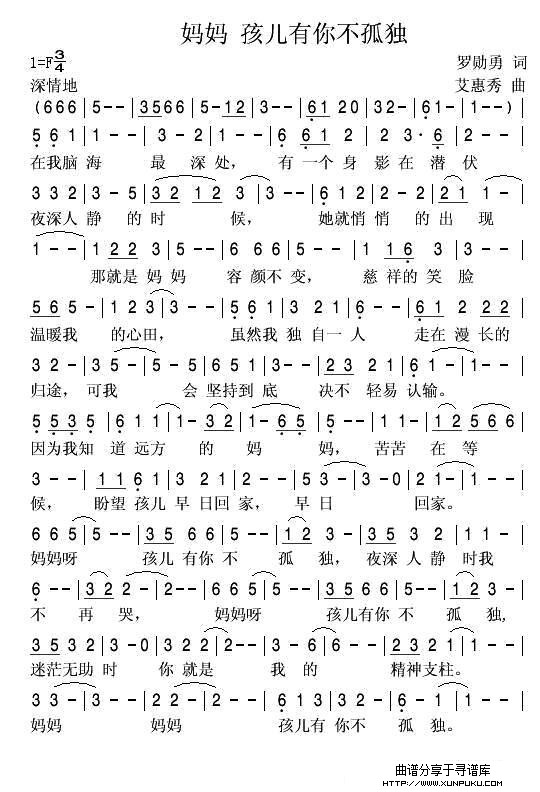 妈妈 孩儿有你不孤独
1=F3/4 罗勋勇 词
深情地 艾惠秀 曲
(666|5--|3566|5-12|3--|6120|32-|61-|1--)|
561|1--|3-2|3--|6 61|2 3·6|2-2|
在我脑海 最 深处, 有一个身影在潜伏
332|3-5|32 12|3-3|3--|332|3-2|21|1-|
夜深人静 的时 候, 她就悄悄 的出 现
1--|122|3-5|5--|665|3--|116|3-5|
那就是妈妈 容颜不变, 慈祥的笑脸
565|5--|123|3--|561|3-5|5--|612|22|
温暖我 的心田, 虽然我独自一人 走在漫长的
332|3--|5-5|651|3--|23|21|61-|1--|
归途,可我 会坚持到底 决不 轻易认输。
5535|611|1-32|2--|1-65|5--|1-1|12566|
因为我知道远方 的 妈 妈, 苦苦 在 等
3--|1161|321|2-2|53-|3-0|21-|1--|
候, 盼望孩儿早日回家, 早日 回家。
665|5--|3566|5-5|123|3--|3566|5-32|11-|
妈妈呀 孩儿有你不 孤 独, 夜深人静 时我
6--|322|2--|665|5--|3566|5-5|123|3--|
不 再哭, 妈妈呀 孩儿有你不 孤 独,
3532|3-0|322|2-5|5--|3-6|6--|2321|1--|
迷茫无助时 你就是 我 的 精神支柱。
33-|3--|22-|2--|613|332|2-6|1--|1--|
妈妈 妈妈 孩儿有 你不 孤 独。
曲谱分享于寻谱库
WWW.XUNPUKU.COM